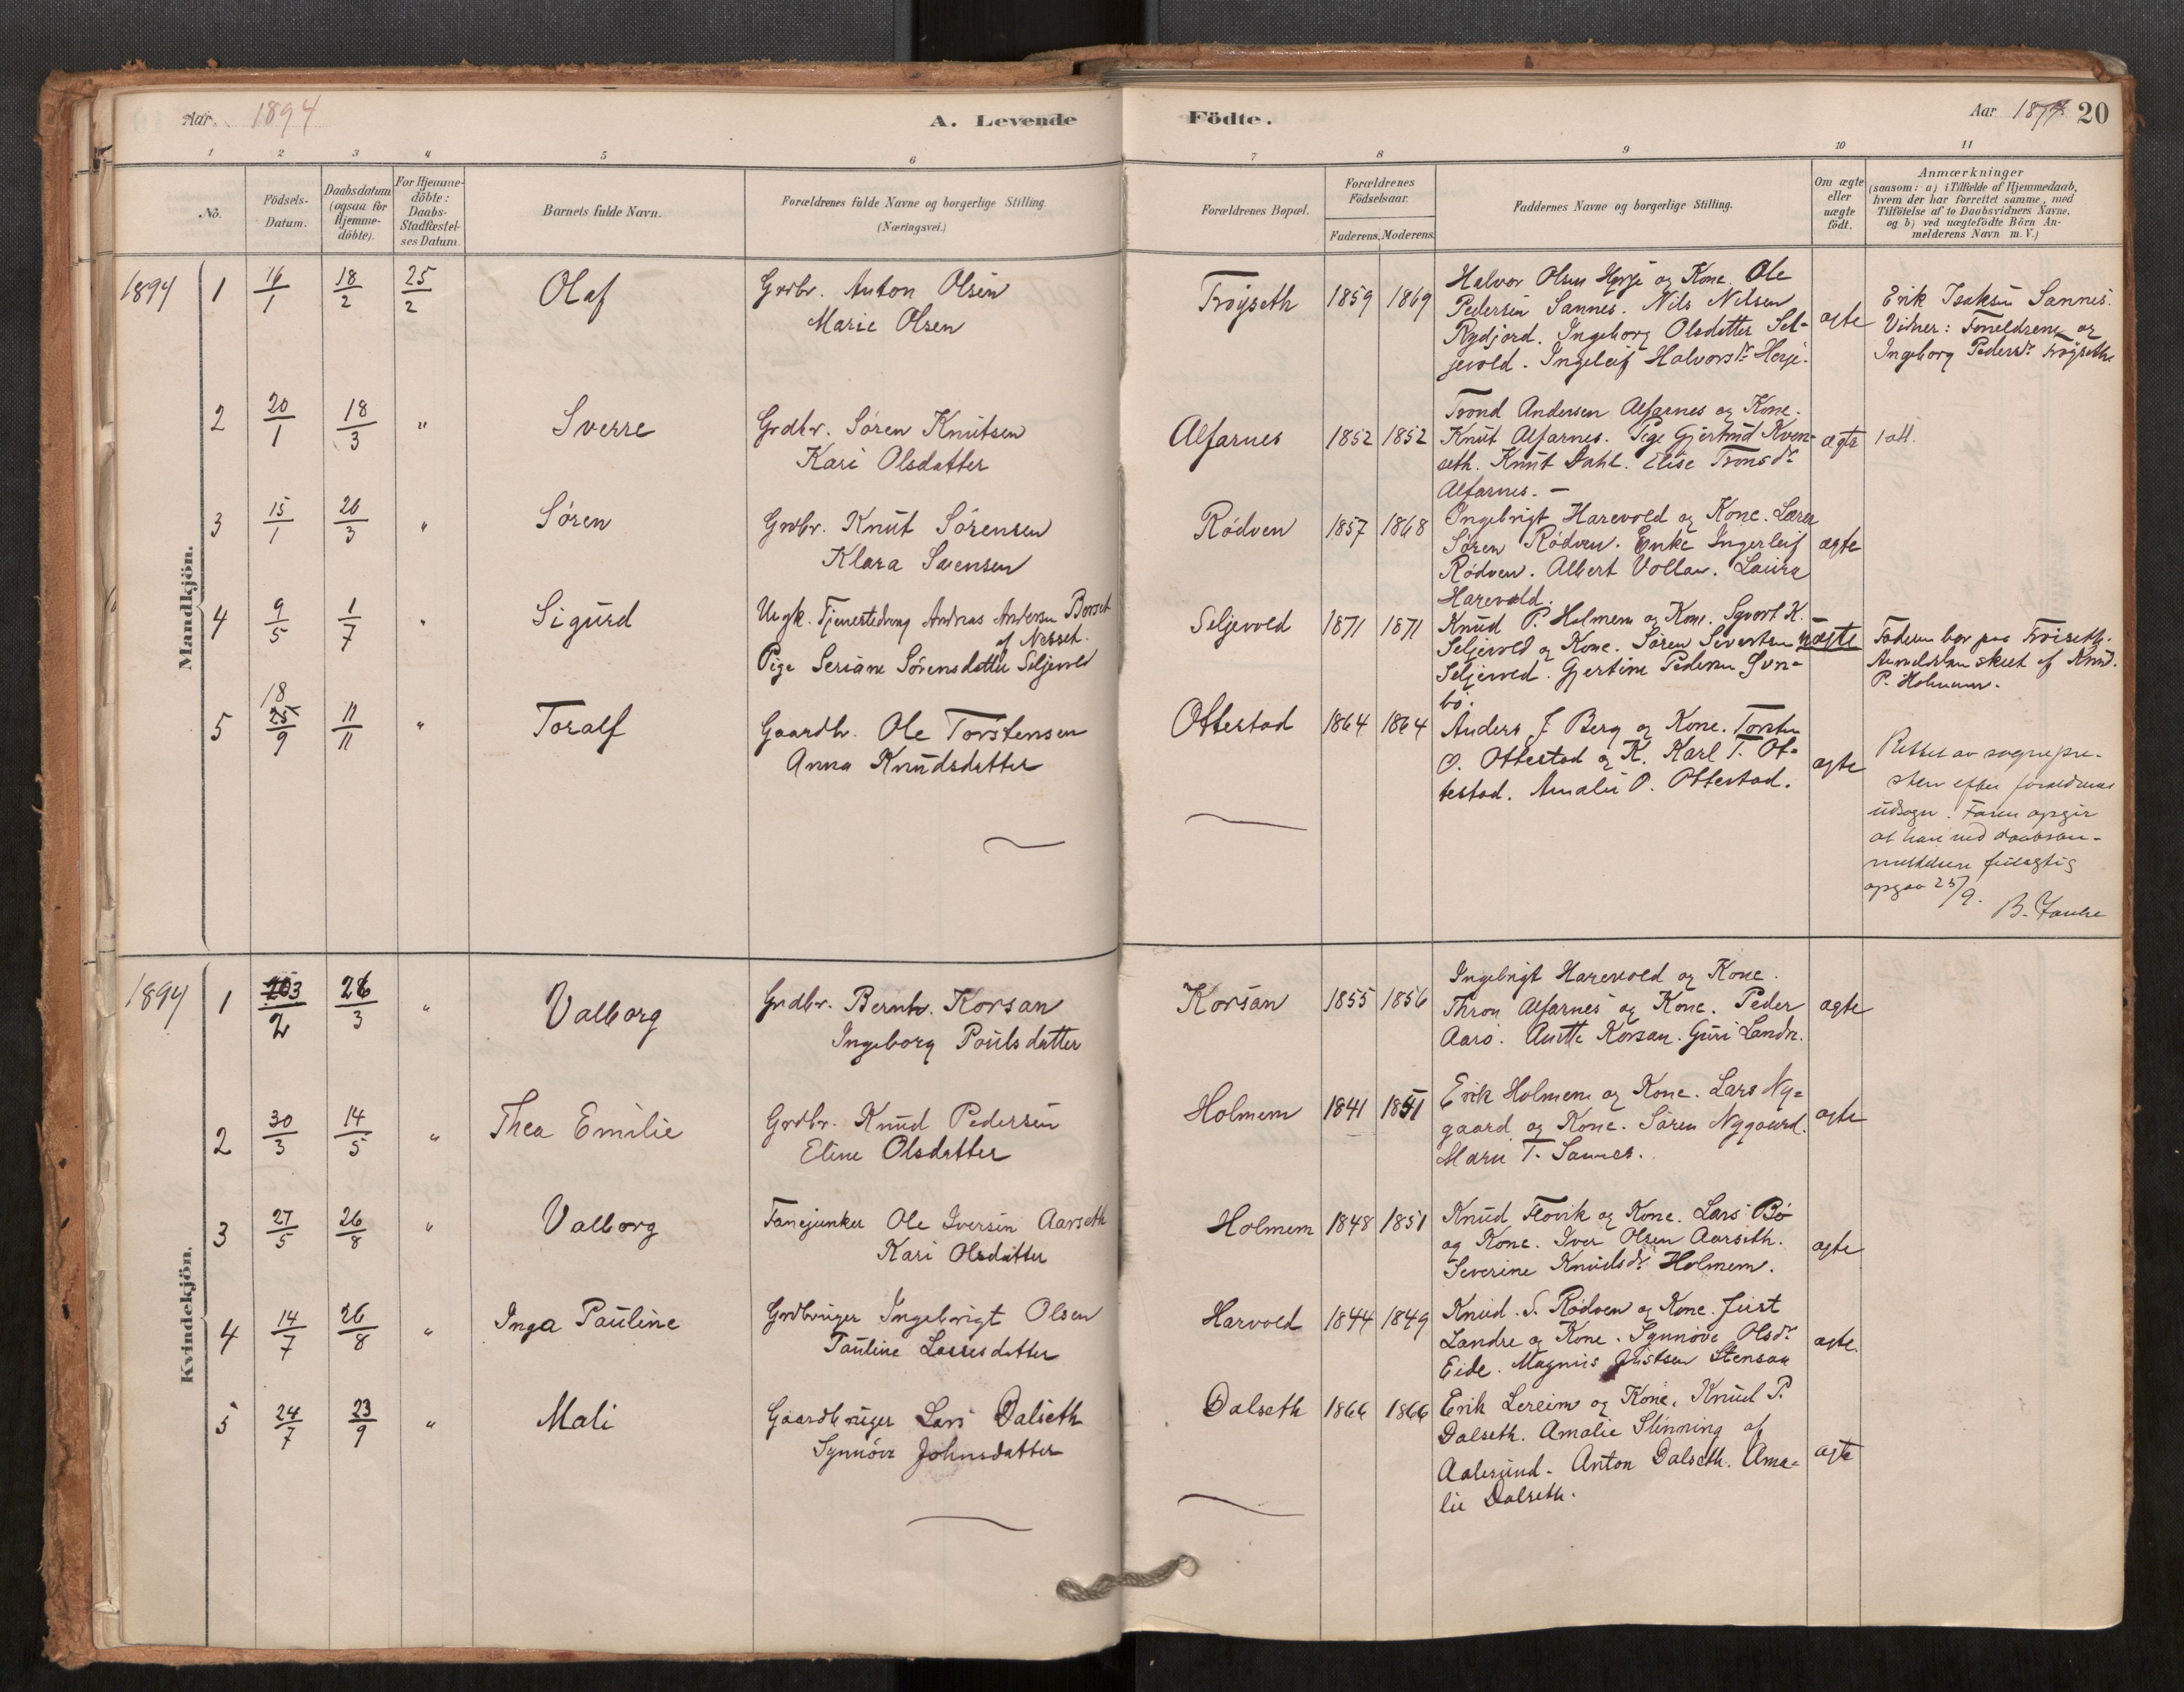 Aar. 1894
A. Levende
Födte.
Aar 1894 20
1 2 3 4 5 6 7 8 9 10 11
No.
Födsels-
Datum.
Daabsdatum
(ogsaa for
Hjemme-
döbte).
For Hjemme-
döbte:
Daabs-
Stadfæstel-
ses Datum.
Barnets fulde Navn.
Forældrenes fulde Navne og borgerlige Stilling
(Næringsvei.)
Forældrenes Bopæl.
Forældrenes
Födselsaar.
Faderens. Moderens.
Faddernes Navne og borgerlige Stilling.
Om ægte
eller
uægte
födt.
Anmærkninger
(saasom: a) i Tilfælde af Hjemmedaab,
hvem der har forrettet samme, med
Tilföielse af to Daabsvidners Navne.
og b) ved uægtefödte Börn An-
melderens Navn m. V.)
Mandkjön.
1894 1 16/1 18/2 25/2 Olaf
Grdbr. Anton Olsen
Marie Olsen
Trøyseth 1859 1869
Halvor Olsen Herje og Kone. Ole
Pedersen Sannes. Nils Nilsen
Rydjord. Ingeborg Olsdatter Sel-
jevold. Ingeleif Halvorsdr. Herje.
ægte
Erik Isaksen Sannes.
Vidner: Forældrene og
Ingeborg Pedersdr. Trøyseth
2 20/1 18/3 " Sverre
Grdbr. Søren Knutsen
Kari Olsdatter
Alfarnes 1852 1852
Trond Andersen Alfarnes og Kone.
Knut Alfarnes. Pige Gjertrud Kven-
seth. Knut Dahl. Elise Tronsdr.
Alfarnes. –
ægte
3 15/1 26/3 " Søren
Grdbr. Knut Sørensen
Klara Svensen
Rødven 1857 1868
Ingebrigt Harevold og Kone. Lærer
Søren Rødven. Enke Ingerleif
Rødven. Albert Vollan. Laura
Harevold.
ægte
4 9/5 1/7 " Sigurd
Ungk. Tjenestedreng Andreas Andersen Borset
af Nesset.
Pige Seriane Sørensdatter Seljevold
Seljevold 1871 1871
Knud P. Holmem og Kone. Syvert K.
Seljevold og Kone. Søren Sivertsen
Seljevold. Gjertine Pedersen Svn-
bø.
uægte
Faderen bor paa Troiseth.
Anmeldelsen skeet af Knud
P. Holmem.
5 18 25/9 11/11 " Toralf
Gaardbr. Ole Torstensen
Anna Knudsdatter
Ottestad 1864 1864
Anders J Berg og Kone. Torsten
O. Ottestad og K. Karl T. Ot-
testad. Amalie O. Ottestad.
ægte
Rettet av sognepre-
sten efter forældrenes
udsagn. Faren opgir
at han ved daabsan-
meldelsen feilagtig
opgav 25/9.
Kvindekjön.
1894 1 203/2 26/3 " Valborg
Grdbr. Bernh. Korsan
Ingeborg Poulsdatter
Korsan 1855 1856
Ingebrigt Harevold og Kone.
Thron Alfarnes og Kone. Peder
Aarö. Anette Korsan. Guri Landr.
ægte
2 30/3 14/5 " Thea Emilie
Grdbr. Knud Pedersen
Eline Olsdatter
Holmem 1841 1851
Erik Holmem og Kone. Lars Ny-
gaard og Kone. Søren Nygaard.
Maren T. Sannes.
ægte
3 27/5 26/8 " Valborg
Fanejunker Ole Iversen Aarseth
Kari Olsdatter
Holmem 1848 1851
Knud Flovik og Kone. Lars Bø
og Kone. Iver Olsen Aarseth.
Severine Knudsdr. Holmem.
ægte
4 14/7 26/8 " Inga Pauline
Grdbruger Ingebrigt Olsen
Pauline Larsesdatter
Harvold 1844 1849
Knud. S. Rødven og Kone. Just
Landre og Kone. Synnøve Olsdr.
Eide. Magnus Justsen Stensan
ægte.
5 24/7 23/9 " Mali
Gaardbruger Lars Dalseth
Synnöve Johnsdatter
Dalseth 1866 1866
Erik Lereim og Kone. Knud P.
Dalseth. Amalie Slinning af
Aalesund. Anton Dalseth. Ama-
lie Dalseth.
ægte